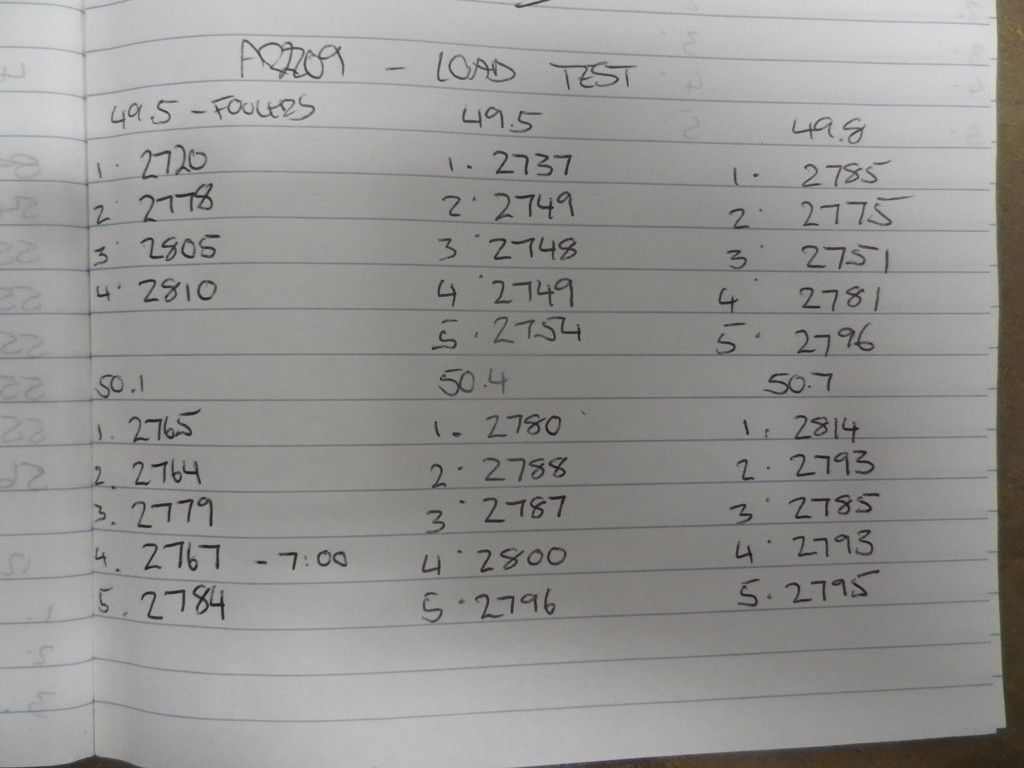 AR2209 - LOAD TEST
49.5 - FOULERS 49.5 49.8
1. 2720 1. 2737 1. 2785
2. 2778 2. 2749 2. 2775
3. 2805 3. 2748 3. 2751
4. 2810 4. 2749 4. 2781
5. 2754 5. 2796
50.1 50.4 50.7
1. 2765 1. 2780 1. 2814
2. 2764 2. 2788 2. 2793
3. 2779 3. 2787 3. 2785
4. 2767 - 7:00 4. 2800 4. 2793
5. 2784 5. 2796 5. 2795